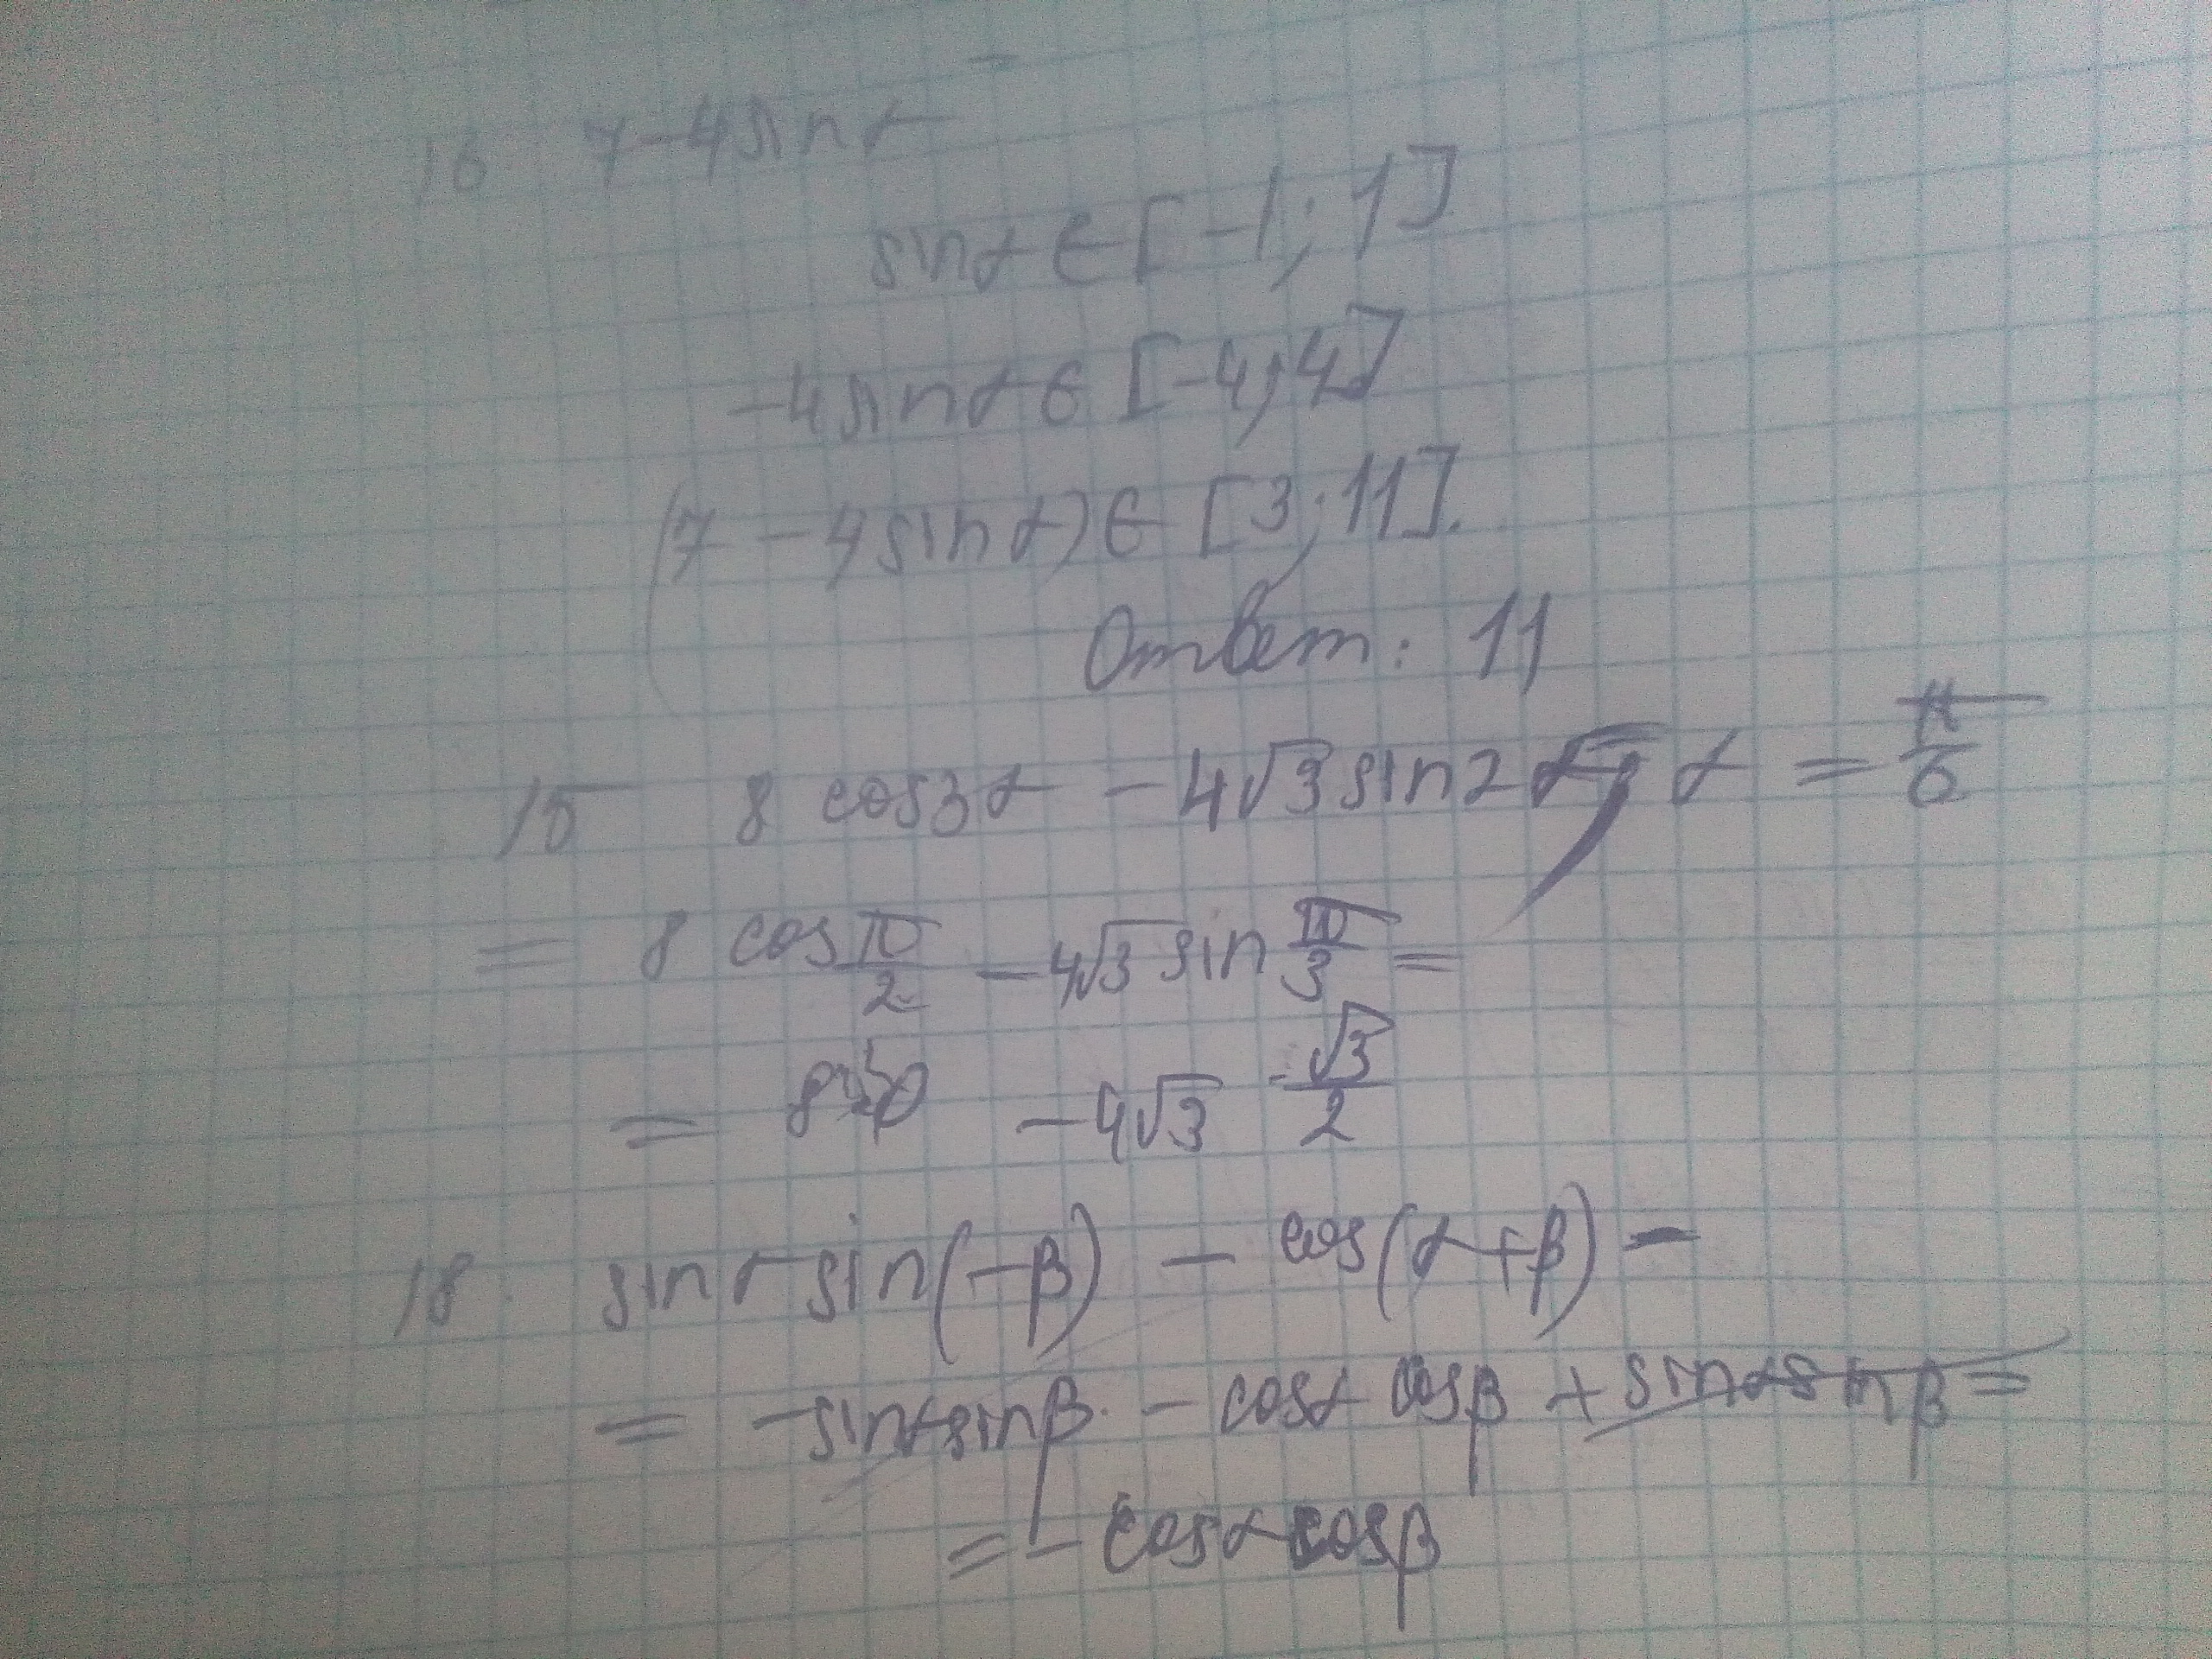 16 7-4sinα
sinα ∈ [-1; 1]
-4sinα ∈ [-4; 4]
(7 - 4sinα) ∈ [3; 11].
Ответ: 11
15 8 cos3α - 4√3 sin2α, α = π/6
= 8 cos π/2 - 4√3 sin π/3 =
= 8·0 - 4√3 · √3/2
18. sinα sin(-β) - cos(α+β) -
= -sinαsinβ - cosα cosβ + sinαsinβ =
= - cosα cosβ